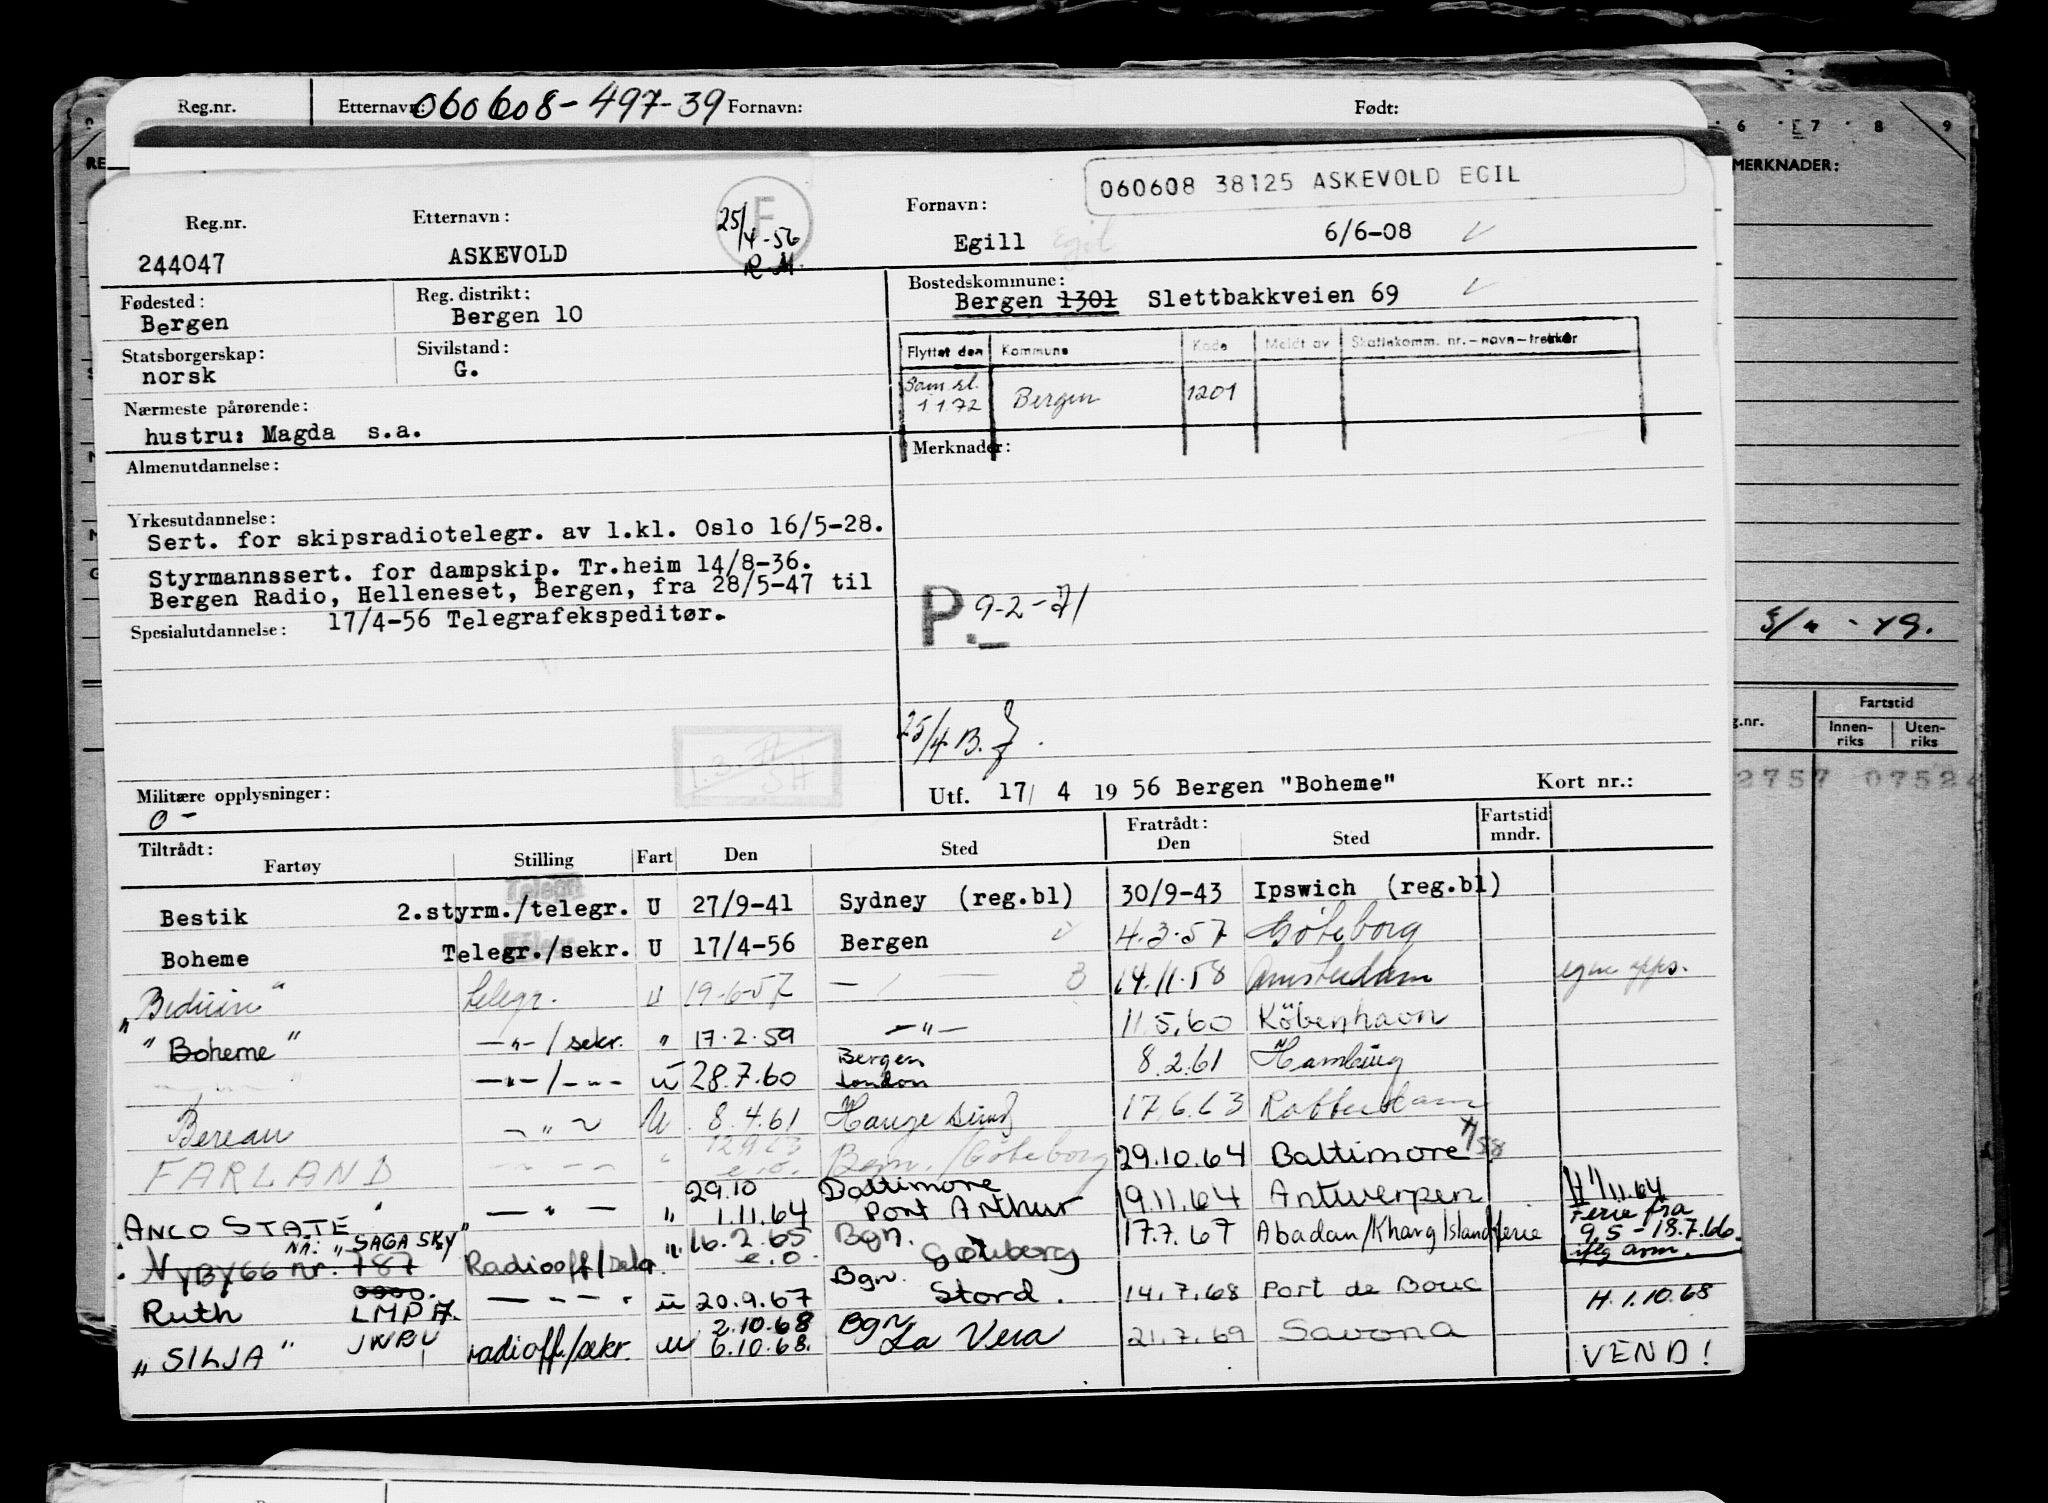 Reg.nr. Etternavn: 060608-497-39 Fornavn: Født:
6 7 8 9
MERKNADER:
060608 38125 ASKEVOLD EGIL
Reg.nr. Etternavn: 25/4-56 F Fornavn:
244047 ASKEVOLD R.M. Egill Egil 6/6-08
Fødested: Reg. distrikt: Bostedskommune:
Bergen Bergen 10 Bergen 1301 Slettbakkveien 69
Statsborgerskap: Sivilstand: Flyttet den Kommune Kode Meldt av Skattekomm. nr.-navn-trekker
norsk G.
Sam.sl. 1 1 72 Bergen 1201
Nærmeste pårørende:
hustru: Magda s.a.
Almenutdannelse: Merknader:
Yrkesutdannelse:
Sert. for skipsradiotelegr. av 1.kl. Oslo 16/5-28.
Styrmannssert. for dampskip. Tr.heim 14/8-36.
Bergen Radio, Helleneset, Bergen, fra 28/5-47 til
Spesialutdannelse: 17/4-56 Telegrafekspeditør.
P. 9-2-71
25/4 B.
Militære opplysninger: Utf. 17/ 4 19 56 Bergen "Boheme" Kort nr.:
0-
Fartstid
Innen-riks Uten-riks
2757 07524
Tiltrådt: Fratrådt: Fartstid
Fartøy Stilling Fart Den Sted Den Sted mndr.
Bestik 2.styrm./telegr. U 27/9-41 Sydney (reg.bl) 30/9-43 Ipswich (reg.bl)
Boheme Telegr./sekr. U 17/4-56 Bergen 4.3.57 Göteborg
"Beduin" telegr. u 19-6-57 — 14.11.58 Amsterdam egne opps.
"Boheme" —"—/sekr. " 17.2.59 —"— 11.5.60 Köbenhavn
—"—/—"— u 28.7.60 Bergen London 8.2.61 Hamburg
Berean —"— U 8.4.61 Haugesund 17.6.63 Rotterdam
FARLAND " 12.9.63 e.o. Bgn./Göteborg 29.10.64 Baltimore
ANCO STATE —"— " 29.10 1.11.64 Baltimore Port Arthur 19.11.64 Antwerpen H 1/11.64
Nå: "SAGA SKY"
NYBYGG nr. 787 Radiooff/sekr " 16.2.65 e.o. Bgn. Göteborg 17.7.67 Abadan/Kharg Island ferie Ferie fra 9.5-18.7.66 iflg arm.
Ruth LMPA —"— u 20.9.67 Bgn. Stord. 14.7.68 Port de Bouc H. 1.10.68
"SILJA" JWBU radioff./sekr. u 2.10.68 6.10.68. Bgn La Vera 21.7.69 Savona VEND!